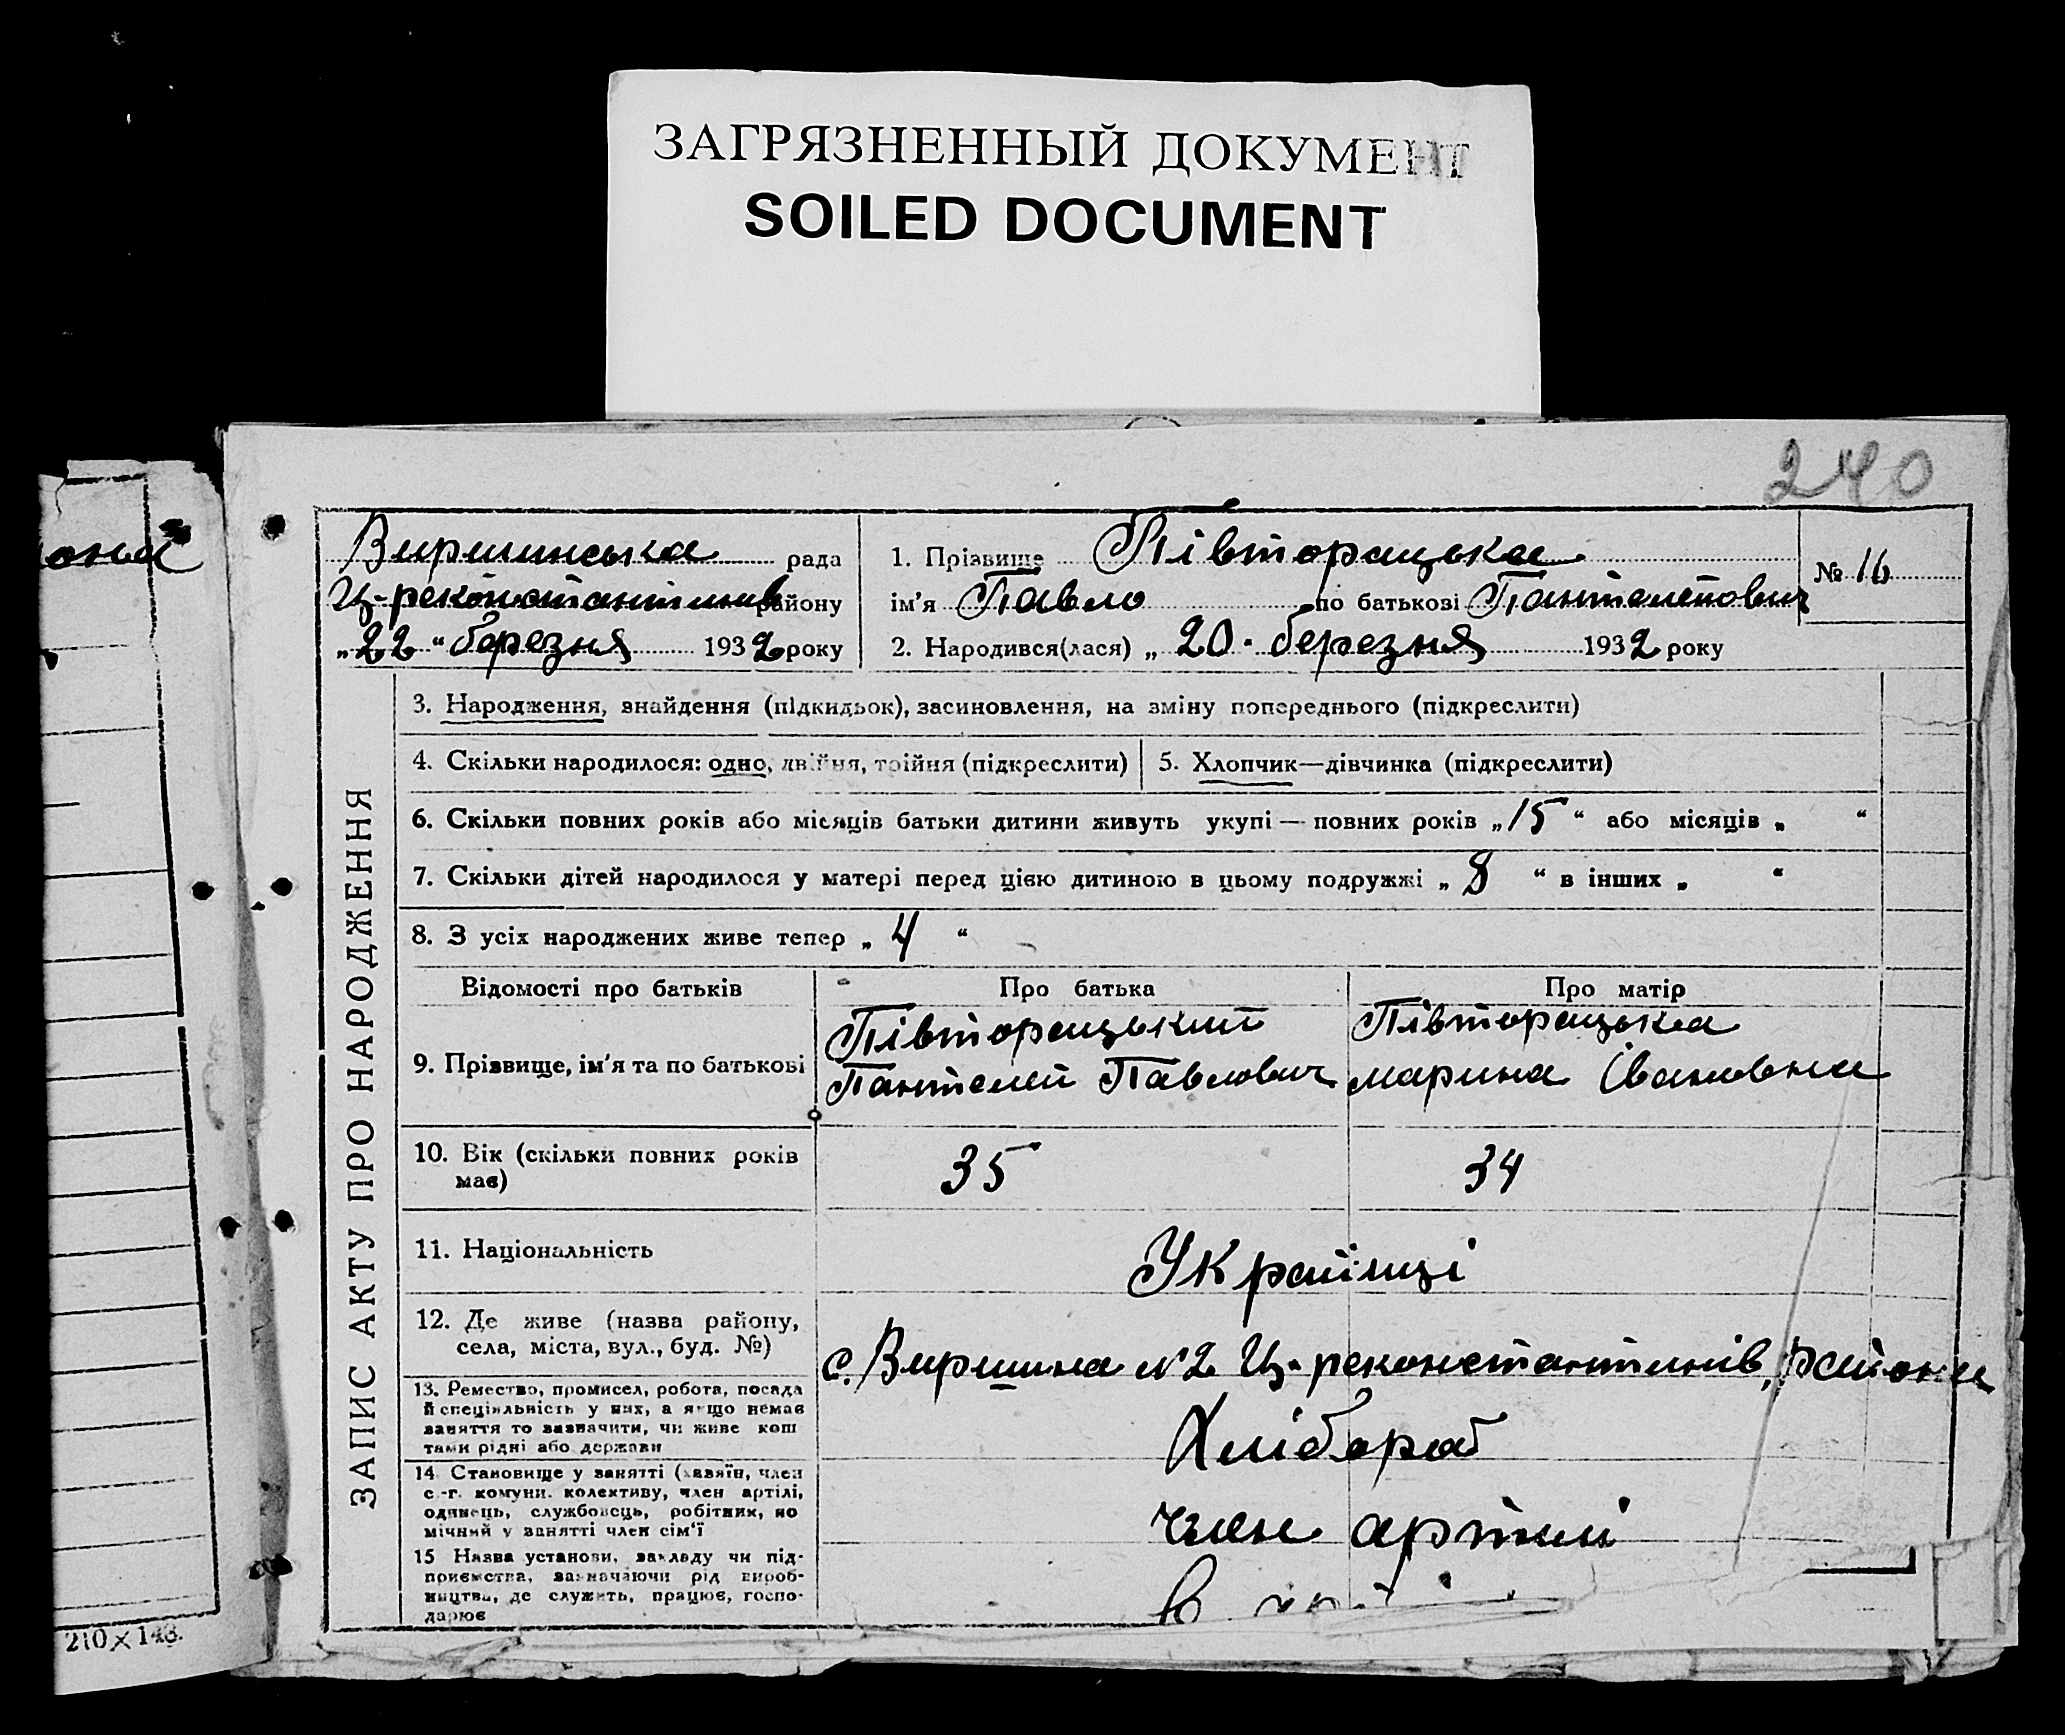 ЗАГРЯЗНЕННЫЙ ДОКУМЕНТ
SOILED DOCUMENT
240
она
Виришинська рада
району
„22“ березня 1932 року
1. Прізвище Півторацька
ім'я Павло по батькові Пантелеїович
2. Народився(лася) „20. березня 1932 року
№ 16
ЗАПИС АКТУ ПРО НАРОДЖЕННЯ
3. Народження, знайдення (підкидьок), засиновлення, на зміну попереднього (підкреслити)
4. Скільки народилося: одно, двійня, трійня (підкреслити)
5. Хлопчик—дівчинка (підкреслити)
6. Скільки повних років або місяців батьки дитини живуть укупі — повних років „15“ або місяців „ “
7. Скільки дітей народилося у матері перед цією дитиною в цьому подружжі „8 “ в інших „ “
8. З усіх народжених живе тепер „ 4 “
Відомості про батьків
Про батька
Про матір
9. Прізвище, ім'я та по батькові
Півторацький
Пантелей Павлович
Півторацька
марина Івановна
10. Вік (скільки повних років
має)
35
34
11. Національність
Українці
12. Де живе (назва району,
села, міста, вул., буд. №)
с. Виришина №2 Ц-реконстантинів, району
13. Ремество, промисел, робота, посада
й спеціяльність у них, а якщо немає
заняття то зазначити, чи живе кош
тами рідні або держави
Хлібороб
14 Становище у занятті (хазяїн, член
с.-г. комуни. колективу, член артілі,
одинець, службовець, робітник, по
мічний у занятті член сім'ї
член артілі
15 Назва установи, закладу чи під-
приємства, зазначаючи рід вироб-
ництва, де служить, працює, госпо-
дарює
В
210×148.